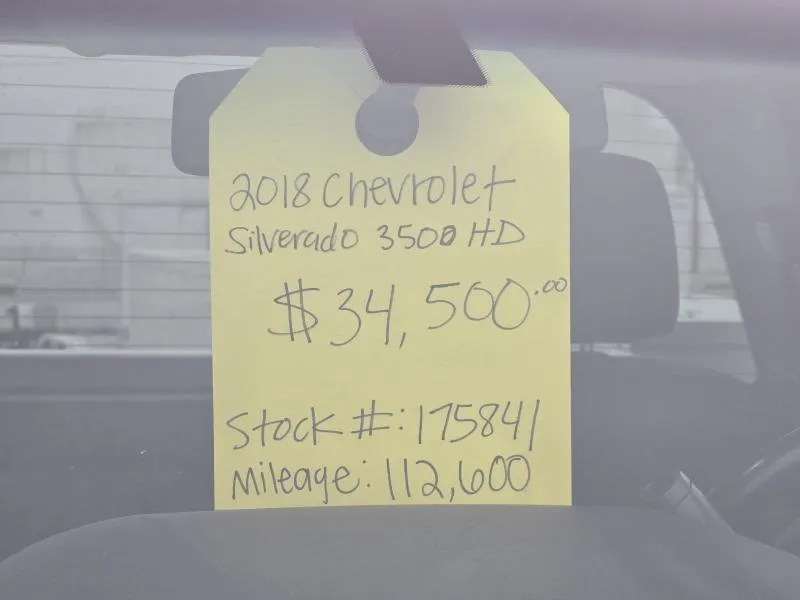 2018 Chevrolet
Silverado 3500 HD
$34,500.00
Stock #: 175841
Mileage: 112,600